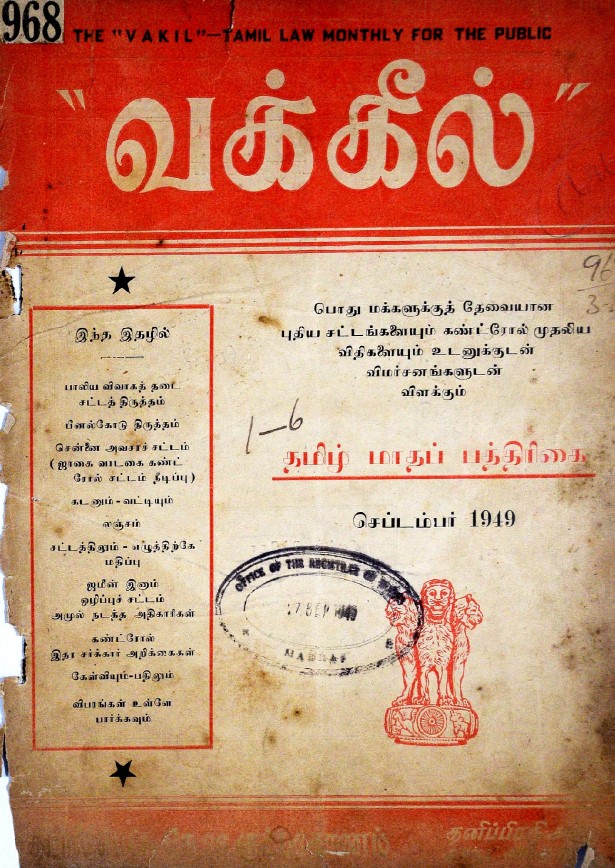 968
THE "VAKIL"—TAMIL LAW MONTHLY FOR THE PUBLIC
"வக்கீல்"
இந்த இதழில்
பாலிய விவாகத் தடை
சட்டத் திருத்தம்
பீனல்கோடு திருத்தம்
சென்னை அவசரச் சட்டம்
(ஜாகை வாடகை கண்ட்
ரோல் சட்டம் நீடிப்பு)
கடனும்-வட்டியும்
லஞ்சம்
சட்டத்திலும்-எழுத்திற்கே
மதிப்பு
ஜமீன் இனம்
ஒழிப்புச் சட்டம்
அமுல் நடத்த அதிகாரிகள்
கண்ட்ரோல்
இதர சர்க்கார் அறிக்கைகள்
கேள்வியும்-பதிலும்
விபரங்கள் உள்ளே
பார்க்கவும்
பொது மக்களுக்குத் தேவையான
புதிய சட்டங்களையும் கண்ட்ரோல் முதலிய
விதிகளையும் உடனுக்குடன்
விமர்சனங்களுடன்
விளக்கும்
1-6
தமிழ் மாதப் பத்திரிகை
செப்டம்பர் 1949
OFFICE OF THE REGISTRAR OF
SEP 1949
MADRAS
தனிப்பிரதி